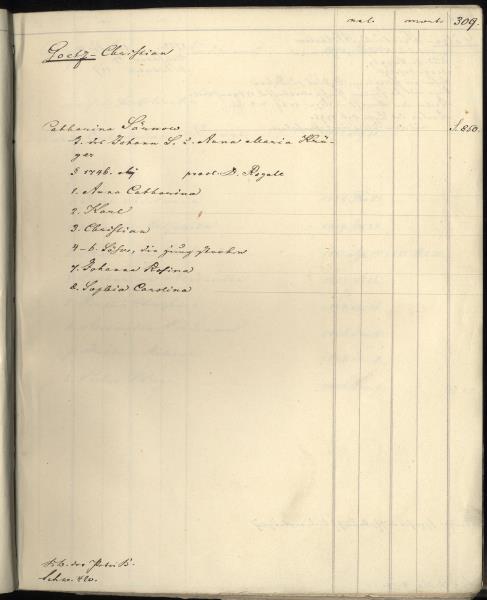 nat. mort. 309.
Goetz - Christian
Catharina Sönnow S. 850.
T. des Johann S. & Anna Maria Krü-
ger
1746. procl. D. Rogall
1. Anna Catharina
2. Karl
3. Christian
4-6. Söhne, die jung starben
7. Johanna Rosina
8. Sophia Carolina
des Petri
420.